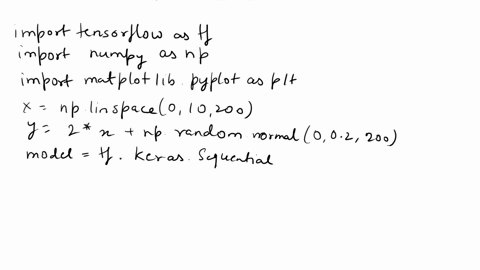 import tensorflow as tf
import numpy as np
import matplotlib pyplot as plt
x = np linspace(0, 10, 200)
y = 2 * x + np random normal (0, 0.2, 200)
model = tf. keras. Sequential